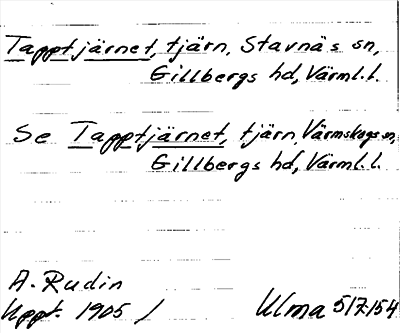 Tapptjärnet, tjärn, Stavnäs sn,
Gillbergs hd, Värml. l.
Se Tapptjärnet, tjärn, Värmskogs sn,
Gillbergs hd, Värml. l.
A. Rudin
Uppt. 1905 / Ulma 517:154